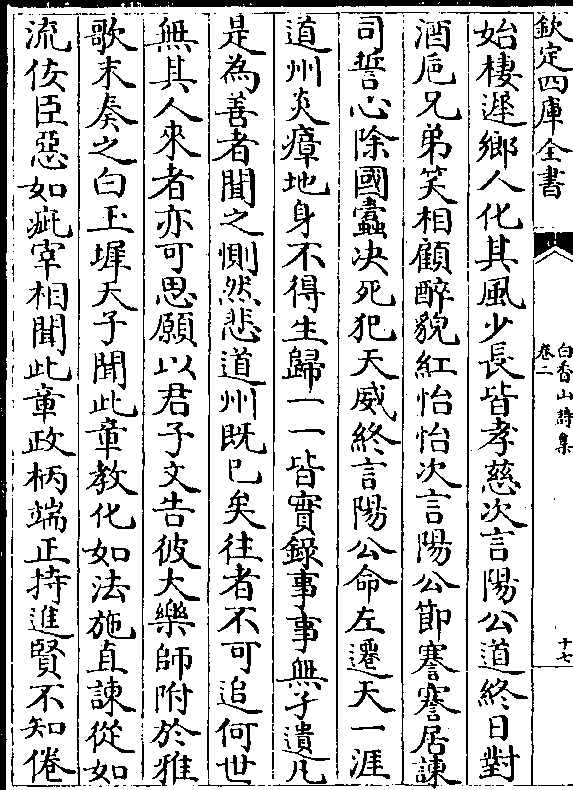 欽定四庫全書
白香山詩集
卷二
十七
始棲遲鄉人化其風少長皆孝慈次言陽公道終日對
酒巵兄弟笑相顧醉貌紅怡怡次言陽公節謇謇居諫
司誓心除國蠧决死犯天威終言陽公命左遷天一涯
道州炎瘴地身不得生歸一一皆實録事事無孑遺凡
是為善者聞之惻然悲道州既已矣往者不可追何世
無其人來者亦可思願以君子文告彼大樂師附於雅
歌末奏之白玉墀天子聞此章教化如法施直諫從如
流佞臣惡如疵宰相聞此章政柄端正持進賢不知倦